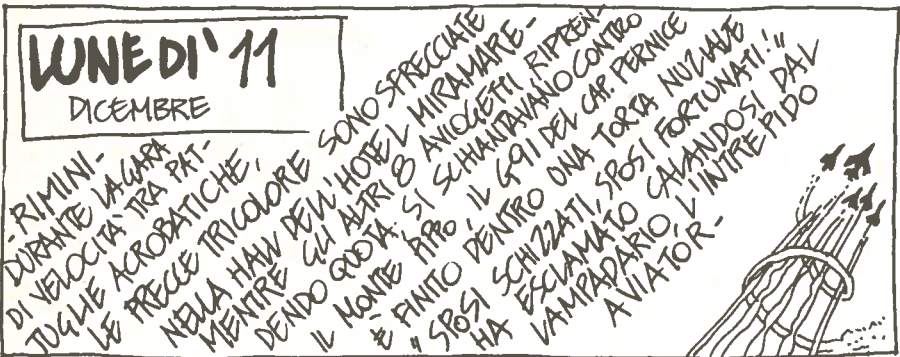 LUNEDI' 11
DICEMBRE
-RIMINI-
DURANTE LA GARA
DI VELOCITA' TRA PAT-
TUGLIE ACROBATICHE,
LE FRECCE TRICOLORE SONO SFRECCIATE
NELLA HALL DELL'HOTEL MIRAMARE-
MENTRE GLI ALTRI 8 AVIOGETTI, RIPREN-
DENDO QUOTA, SI SCHIANTAVANO CONTRO
IL MONTE PIPPO, IL G91 DEL CAP. PERNICE
È FINITO DENTRO UNA TORTA NUZIALE
"SPOSI SCHIZZATI, SPOSI FORTUNATI!"
HA ESCLAMATO CALANDOSI DAL
LAMPADARIO, L'INTREPIDO
AVIATOR-